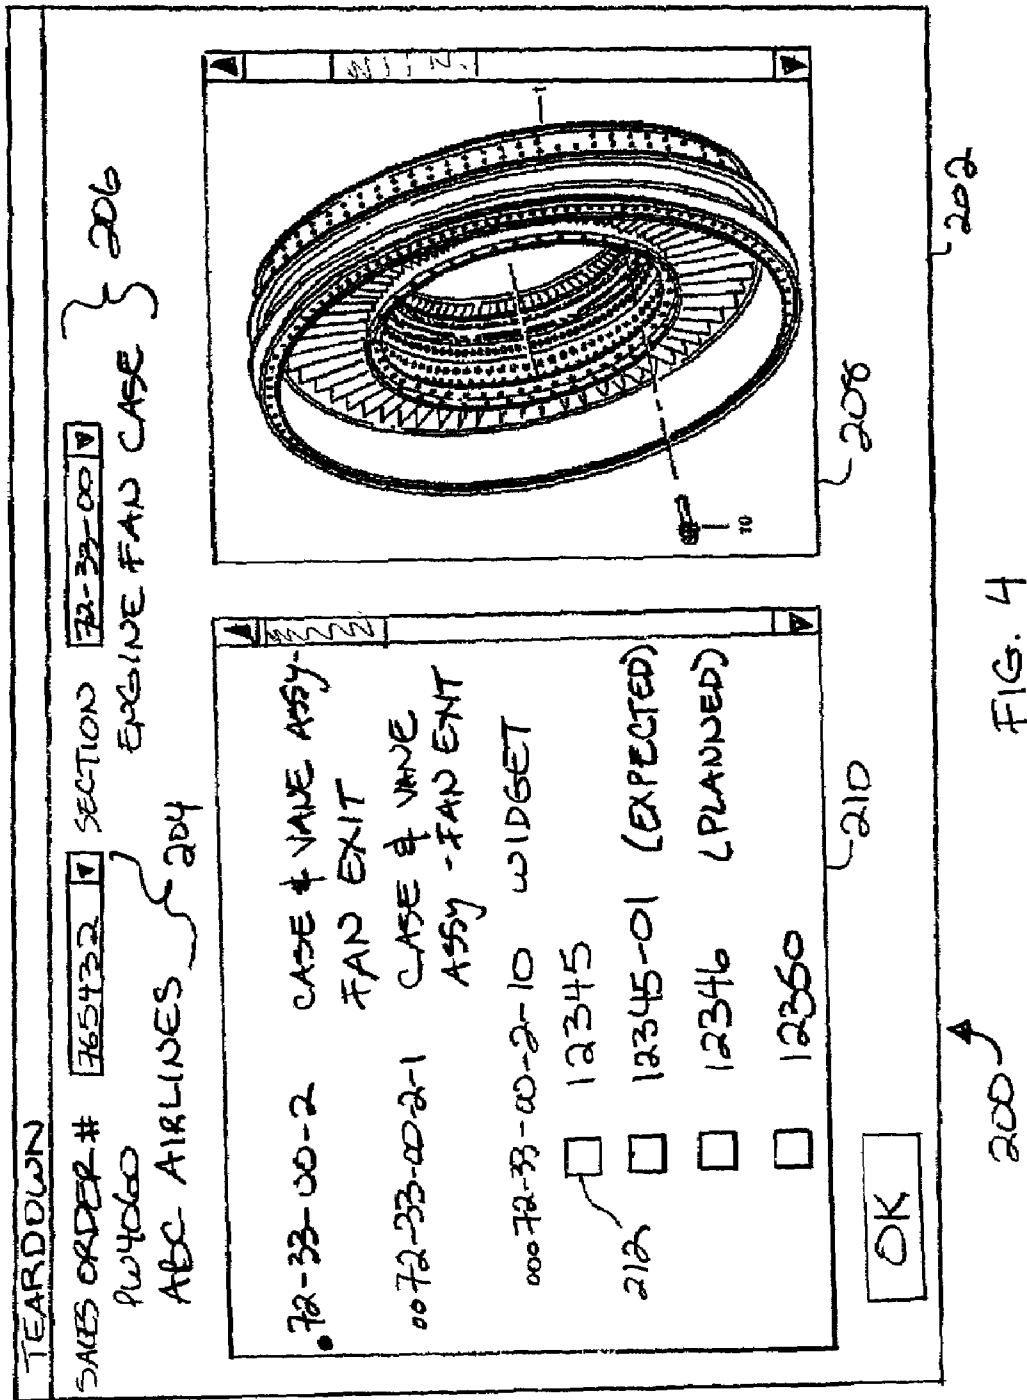 TEARDOWN
SALES ORDER # 7654322 SECTION 72-33-00
PW4060 ENGINE FAN CASE 206
ABC AIRLINES 204
.72-33-00-2 CASE & VANE ASSY-
FAN EXIT
..72-33-00-2-1 CASE & VANE
ASSY - FAN EXIT
...72-33-00-2-10 WIDGET
12345
212
12345-01 (EXPECTED)
12346 (PLANNED)
12350
1
10
OK
210
208
202
200
FIG. 4